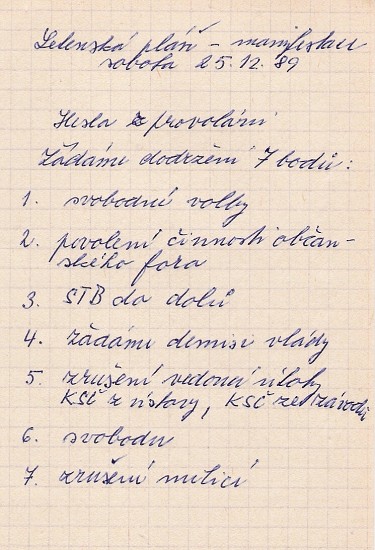 Letenská pláň – manifestace
sobota 25.12.89
Hesla z provolání
Žádáme dodržení 7 bodů:
1. svobodné volby
2. povolení činnosti občan-
ského fora
3. STB do dolů
4. žádáme demisi vlády
5. zrušení vedoucí úlohy
KSČ z ústavy, KSČ ze závodů
6. svobodu
7. zrušení milicí